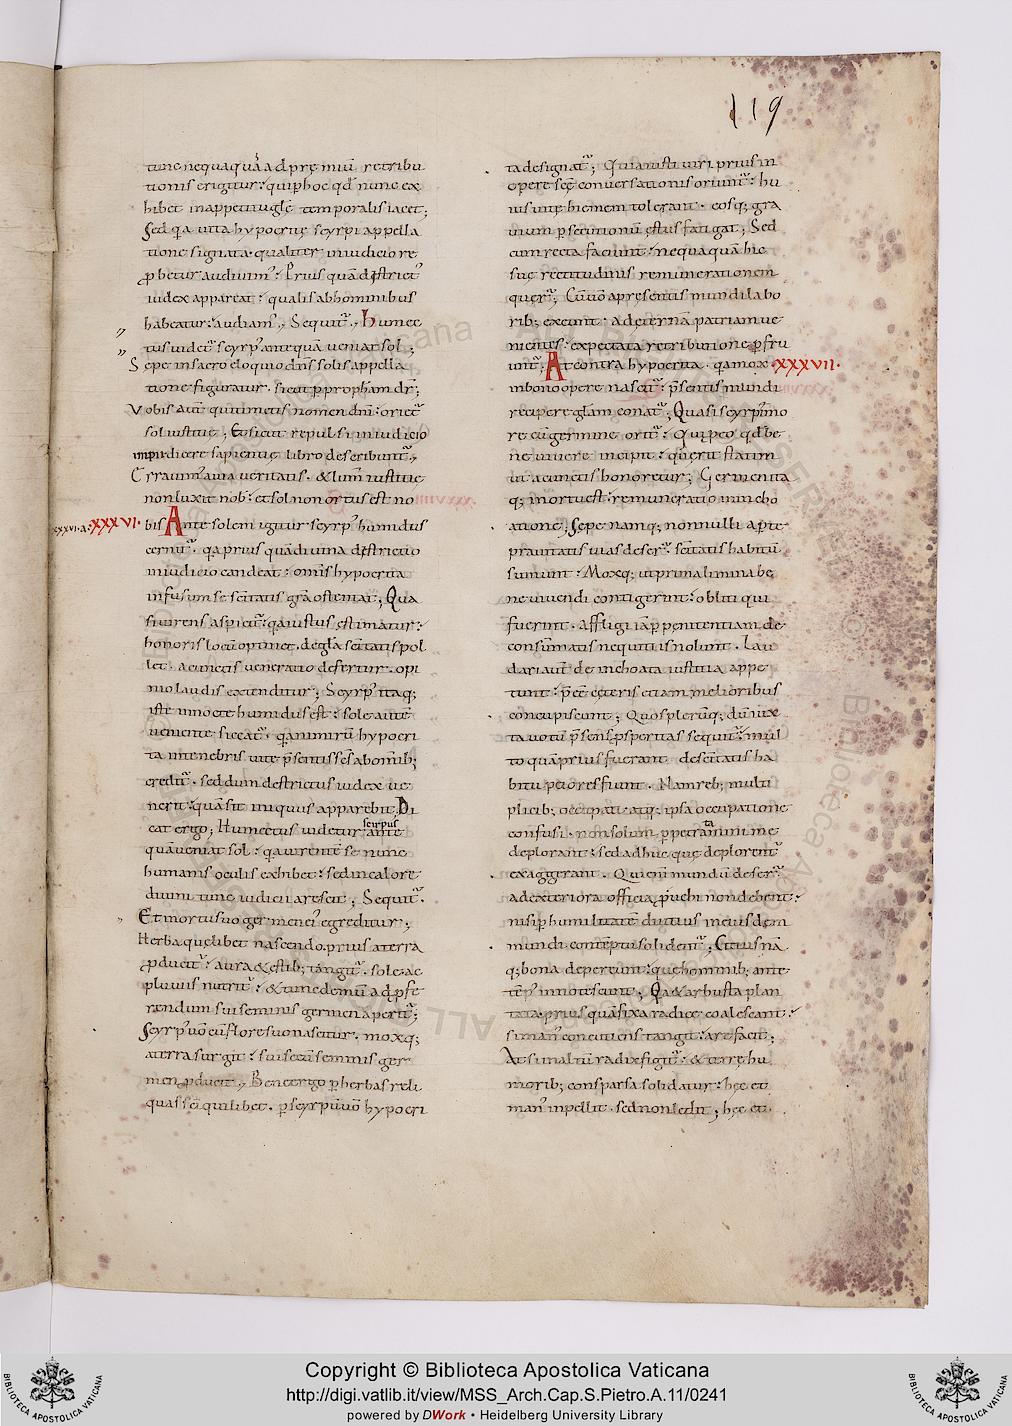 119
tunc nequaquā ad pręmiū retribu
tionis erigitur; quip hoc qd nunc ex
hibet in appetitu glę temporalis iacet;
Sed qa uita hypocritę scyrpi appella
tione signata qualiter in iudicio re
probetur audiuim; Prius quā districti
iudex appareat; qualis ab hominibus
habeatur; audiams; Sequit; humec
tus uidet scyrp antequā ueniat sol;
Sepe in sacro eloquio dns solis appella
tione figuratur. sicut p propham dr;
Vobis aut qui timetis nomen dni; oriet
sol iustitię; Et sicut repulsi in iudicio
impii dicere sapientię libro describunt;
Errauim a uia ueritatis. & lum iustitię
non luxit nob; et sol non ortus est no
xxxvi.a. XXXVI. bis Ante solem igitur scyrp humidus
cernit. qa prius quā diuina districtio
in iudicio candeat; omis hypocrita
infusum se scitatis gra ostentat; Qua
si uirens aspicit; qa iustus ęstimatur;
honoris locū optinet. de gla scitatis pol
let. a cunctis ueneratio defertur. opi
nio laudis extenditur; Scyrp itaq;
iste in nocte humidus est; sole autē
ueniente siccat. qa nimirū hypocri
ta in tenebris uitę psentis scs ab omib;
credit. sed dum destrictus iudex ue
nerit; quā sit iniquus apparebit. Di
cat ergo; Humectus uidetur scirpus ante
quā ueniat sol; qa uirentē se nunc
humanis oculis exhibet; sed in calore
diuini tunc iudicii arescit; Sequit.
Et in ortu suo germen ei egreditur;
Herba quęlibet nascendo. prius a terra
producit; aura & estib; tangit. sole ac
pluuiis nutrit; & tunc demū ad profe
rendum sui seminis germen aperit;
Scyrp uō cū flore suo nascitur. moxq;
a terra surgit; sui secū seminis ger
men producit; Bene ergo p herbas reli
quas sci quilibet. p scyrpū uō hypocri
ta designat; Quia iusti uiri prius in
opere scę conuersationis oriunt; hu
ius uitę hiemem tolerant. eosq; gra
uium psecutionū ęstus fatigat; Sed
cum recta faciunt; nequaquā hic
suę rectitudinis remunerationem
querit; Cū uō a presentis mundi labo
rib; exeunt; ad eternā patriam ue
nientes; expectata retributione pfru
unt; At contra hypocrita. qa mox XXXVII.
in bono opere nascit; psentis mundi
recipere glam conat; Quasi scyrp mo
re cū germine orit; Qui pro eo qd be
ne uiuere incipit; querit statim
ut a cunctis honoretur; Germen ita
q; in ortu est; remuneratio in incho
atione; Sepe namq; nonnulli apte
prauitatis uias deser. scitatis habitū
sumunt; Moxq; ut prima limina be
ne uiuendi contigerunt; obliti qui
fuerint. Affligi iā p penitentiam de
consumatis nequitiis nolunt. Lau
dari aut de inchoata iustitia appe
tunt; preē cęteris etiam melioribus
concupiscunt; Quos plerūq; dū iux
ta uotū psens prosperitas sequit; mul
to quā prius fuerant de scitatis ha
bitu peiores fiunt. Nam reb; multi
plicib; occupati. atq; ipsa occupatione
confusi. non solum perpetrata minime
deplorant; sed adhuc quę deplorent
exaggerant. Qui enī mundū deser
ad exteriora officia puehi non debent;
nisi p humilitatē diutius in eiusdem
mundi contēptu solident; Citius nā
q; bona depereunt; quę hominib; ante
tēp innotescunt; Qa & arbusta plan
tata. prius quā fixa radice coalescant;
si man concutiens tangit; arefacit;
At si in altū radix figit; & terrę hu
morib; consparsa solidatur; hęc et
man inpellit. sed non ledit; hęc et
Copyright © Biblioteca Apostolica Vaticana
http://digi.vatlib.it/view/MSS_Arch.Cap.S.Pietro.A.11/0241
powered by DWork • Heidelberg University Library